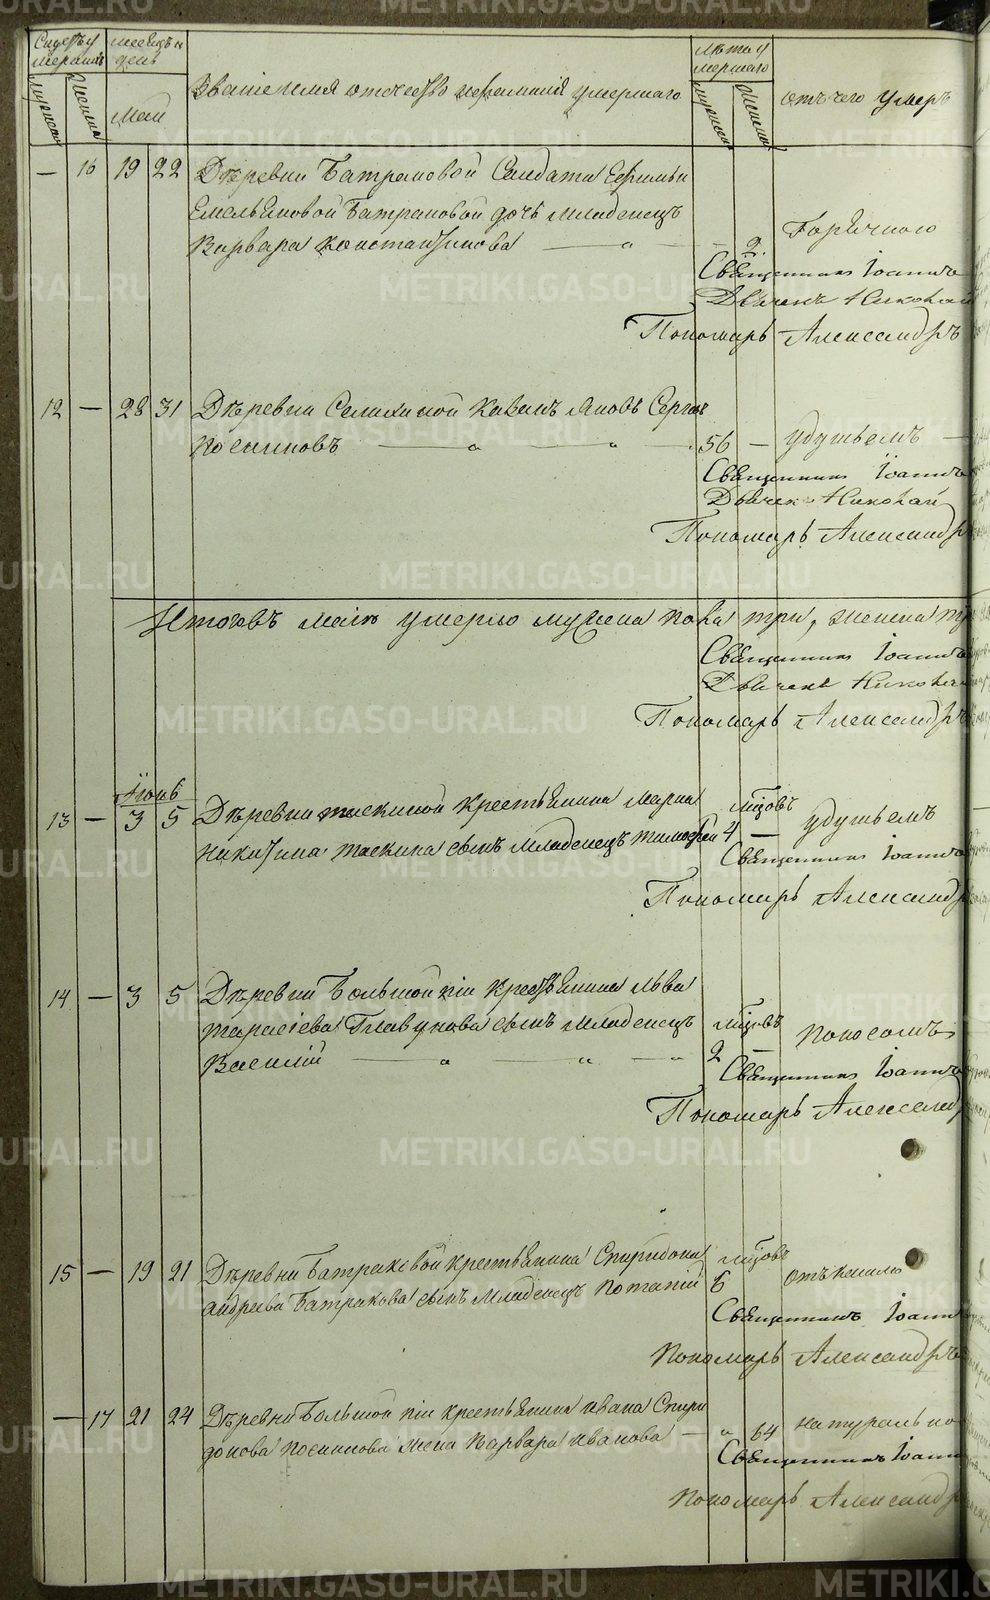 Счетъ у мершихъ
месецъ и день
Званіе имя отчество и фамилія умершаго
Лета у мершаго
отъ чего умеръ
мужеска
женска
Маія
мужеска
женска
— 16 19 22 Деревни Батраковой Салдатки
Емельяновой Батраковой дочь младенецъ
Варвара Константинова — „ — 2. Горячкою
Священникъ Іоаннъ
Дьячекъ Николай
Пономарь Александръ
12 — 28 31 Деревни
56 — удушьемъ —
Священникъ Іоаннъ
Дьячекъ Николай
Пономарь Александръ
Итого въ маіе умерло мужеска пола три, женска
Священникъ Іоаннъ
Дьячекъ Николай
Пономарь Александръ
Іюнь
13 — 3 5 Деревни Таскиной крестьянина Марка мцовъ
Никитина Таскина сынъ младенецъ Тимофей 4 — удушьемъ
Священникъ Іоаннъ
Пономарь Александръ
14 — 3 5 Деревни Большой крестьянина Льва
Тарасіева Главунова сынъ младенецъ мцовъ
Василій — „ — „ — „ 2 — поносомъ
Священникъ Іоаннъ
Пономарь Александръ
15 — 19 21 Деревни Батраковой крестьянина Спиридона мцовъ
Андреева Батракова сынъ младенецъ Потапій 6 отъ кашля
Священникъ Іоаннъ
Пономарь Александръ
— 17 21 24 Деревни Большой крестьянина Ивана Спири
донова жена Варвара Иванова — „ 64 натурально
Священникъ Іоаннъ
Пономарь Александръ
METRIKI.GASO-URAL.RU